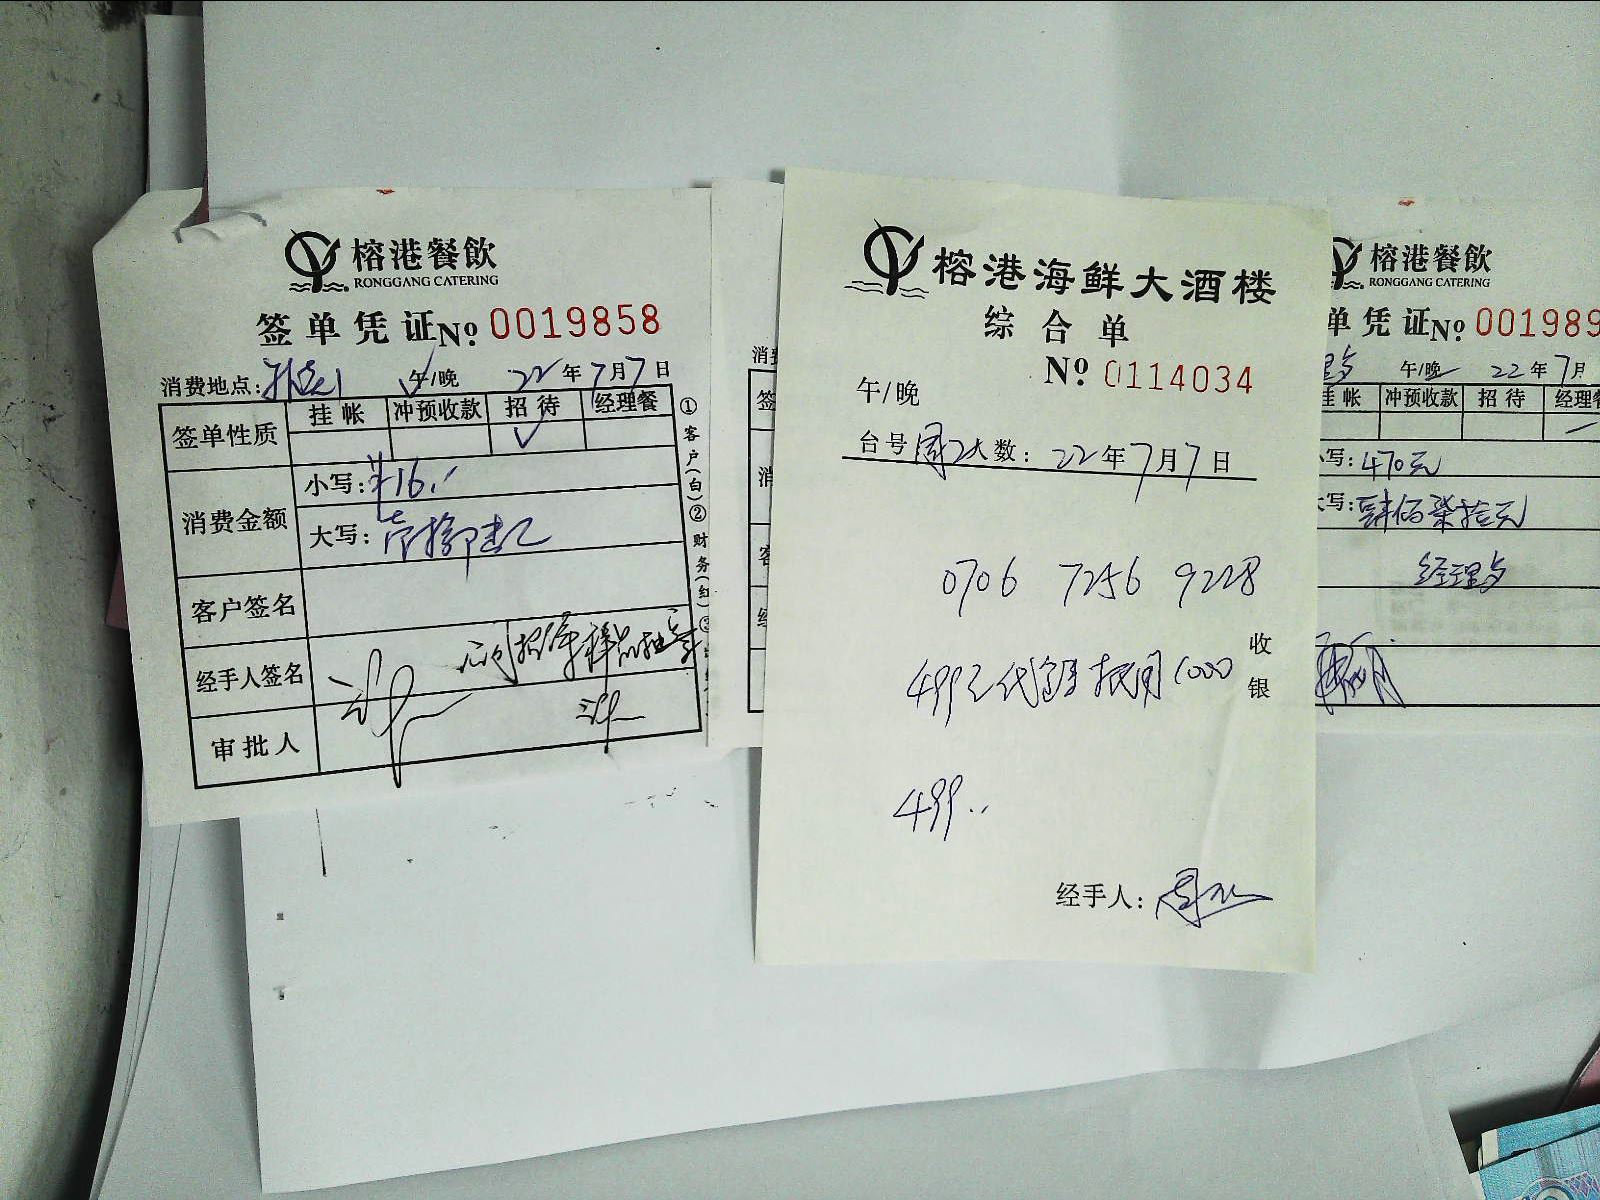 榕港餐飲
RONGGANG CATERING
签单凭证No. 0019858
消费地点: 午/晚 22年7月7日
签单性质 挂帐 冲预收款 招待 经理餐
消费金额 小写:¥16.
大写:
客户签名
经手人签名
审批人
①客户(白)②财务(红)
榕港海鲜大酒楼
综合单
No 0114034
午/晚
台号 数: 22年7月7日
0706 7256 9228
499元代 抵用1000
收银
499..
经手人:
榕港餐飲
RONGGANG CATERING
单凭证No. 001989
午/晚 22年7月
挂帐 冲预收款 招待 经理餐
小写:470元
大写:肆佰柒拾元
经理